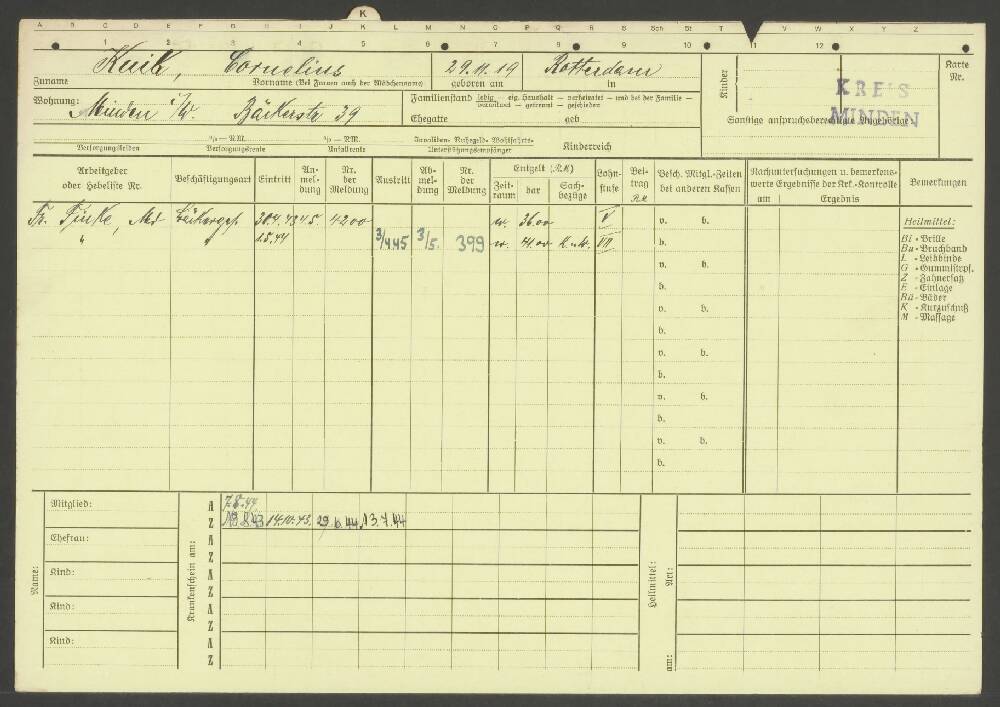 K
A B C D E F G H I J K L M N O P Q R S Sch St T U V W X Y Z
1 2 3 4 5 6 7 8 9 10 11 12
Kuik, Cornelius 29.11.19 Rotterdam
Zuname Vorname (Bei Frauen auch der Mädchenname) geboren am in
Kinder
Karte Nr.
KREIS
MINDEN
Wohnung: Minden i/W. Bäckerstr. 39
Familienstand ledig — eig. Haushalt — verheiratet — und bei der Familie —
— getrennt — geschieden
Ehegatte geb
Sonstige anspruchsberechtigte Angehörige
Versorgungsleiden
% — R.M.
Versorgungsrente
% — R.M.
Unfallrente
Invaliden- Ruhegeld- Wohlfahrts-
Unterstützungsempfänger
Kinderreich
Arbeitgeber oder Hebeliste Nr.
Beschäftigungsart
Eintritt
An-mel-dung
Nr. der Meldung
Austritt
Ab-mel-dung
Nr. der Meldung
Entgelt (R.M.)
Zeit-raum
bar
Sach-bezüge
Lohn-stufe
Bei-trag R.M.
Besch. Mitgl.-Zeiten bei anderen Kassen
Nachuntersuchungen u. bemerkens-werte Ergebnisse der Krk.-Kontrolle
am
Ergebnis
Bemerkungen
Fr. Finke, Md Bäckerges. 30.4.43 4.5. 4200 w. 36.00 V v. b.
" 1.5.44 3/4.45 3/5. 399 w. 41.00 K.u.W. VII b.
v. b.
b.
v. b.
b.
v. b.
b.
v. b.
b.
v. b.
b.
Heilmittel:
Bi - Brille
Bu - Bruchband
L - Leibbinde
G - Gummistrpf.
Z - Zahnersatz
E - Einlage
Bä - Bäder
K - Kurzuschuß
M - Massage
Name:
Mitglied:
Ehefrau:
Kind:
Kind:
Kind:
Krankenschein am:
A 7.8.44
Z 14.10.43. 29.6.44 13.7.44
A
Z
A
Z
A
Z
A
Z
Heilmittel:
Art:
am: